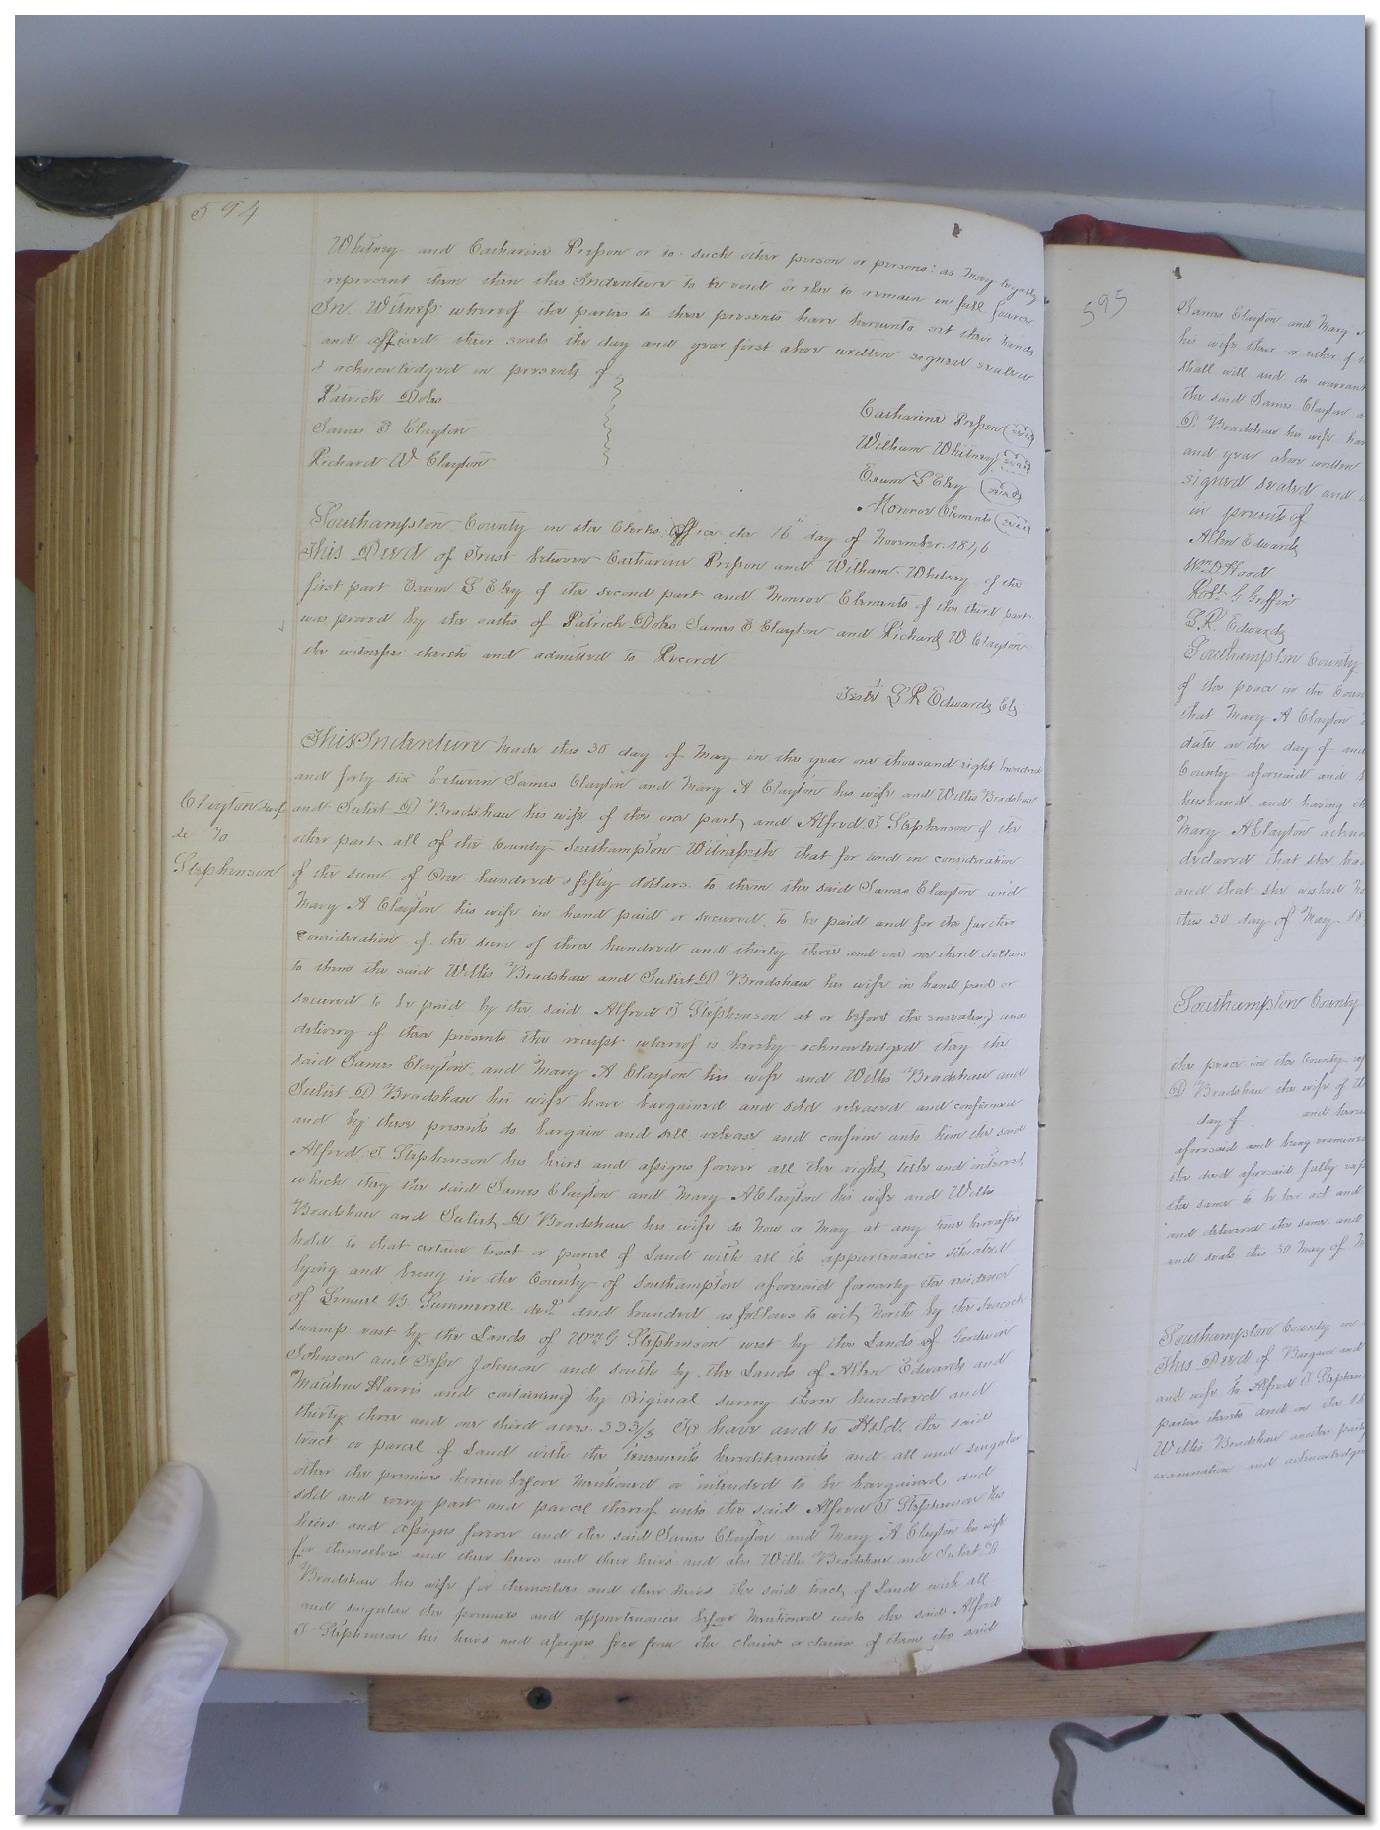 594
Whitney and Catharine Presson or to such other person or persons as may legally
represent them then this Indenture to be void or else to remain in full force
In Witness whereof the parties to these presents have hereunto set their hands
and affixed their seals the day and year first above written signed sealed
& acknowledged in presents of
Patrick Doles
James T Clayton
Richard W Clayton
Catharine Presson (seal)
William Whitney (seal)
Exum L Eley (seal)
Monroe Clements (seal)
Southampton County in the Clerks Office the 16th day of November 1846
This Deed of Trust between Catharine Presson and William Whitney of the
first part Exum L Eley of the second part and Monroe Clements of the third part
was proved by the oaths of Patrick Doles James T Clayton and Richard W Clayton
the witnesses thereto and admitted to Record
Teste L R Edwards Clk
Clayton &wife
&c To
Stephenson
This Indenture Made this 30 day of May in the year one thousand eight hundred
and forty six between James Clayton and Mary A Clayton his wife and Willis Bradshaw
and Juliet D Bradshaw his wife of the one part, and Alfred T Stephenson of the
other part all of the County Southampton Witnesseth that for and in consideration
of the sum of One hundred & fifty dollars to them the said James Clayton and
Mary A Clayton his wife in hand paid or secured to be paid and for the further
consideration of the sum of three hundred and thirty three and one third dollars
to them the said Willis Bradshaw and Juliet D Bradshaw his wife in hand paid or
secured to be paid by the said Alfred T Stephenson at or before the ensealing and
delivery of these presents the receipt whereof is hereby acknowledged they the
said James Clayton and Mary A Clayton his wife and Willis Bradshaw and
Juliet D Bradshaw his wife have bargained and sold released and confirmed
and by these presents do bargain and sell release and confirm unto him the said
Alfred T Stephenson his heirs and assigns forever all the right, title and interest
which they the said James Clayton and Mary A Clayton his wife and Willis
Bradshaw and Juliet D Bradshaw his wife do now or may at any time hereafter
hold to that certain tract or parcel of Land with all its appurtenances situated
lying and being in the County of Southampton aforesaid formerly the residence
of Lemuel B. Summerell decd and bounded as follows to wit, North by the Seacock
swamp east by the Lands of Wm G Stephenson west by the Lands of Goodwin
Johnson and Jesse Johnson and south by the Lands of Allen Edwards and
Matthew Harris and containing by original survey three hundred and
thirty three and one third acres. 333 1/3 To have and to Hold, the said
tract or parcel of Land with the tenements hereditaments and all and singular
other the premises herein before mentioned or intended to be bargained and
sold and every part and parcel thereof unto the said Alfred T Stephenson his
heirs and assigns forever and the said James Clayton and Mary A Clayton his wife
for themselves and their heirs and their heirs and also Willis Bradshaw and Juliet D
Bradshaw his wife for themselves and their heirs the said tract of Land with all
and singular the premises and appurtenances before mentioned unto the said Alfred
T Stephenson his heirs and assigns free from the claim or claims of them the said
595
James Clayton and Mary A
his wife their or either of
shall will and do warrant
the said James Clayton a
D. Bradshaw his wife have
and year above written
signed sealed and
in presents of
Allen Edwards
Wm D Hood
Robt G Griffin
L R Edwards
Southampton County
of the peace in the Coun
that Mary A Clayton
date on the day of and
County aforesaid and
husband and having
Mary A Clayton ackno
declared that she had
and that she wished
this 30 day of May 18
Southampton County
the peace in the County
D Bradshaw the wife of W
day of and
aforesaid and being examined
the deed aforesaid fully
the same to be her act and
and delivered the same and
and seals this 30 May of
Southampton County in
This Deed of Bargain and
and wife to Alfred T Stephen
parties thereto and on the
Willis Bradshaw under
examination and acknowledgm